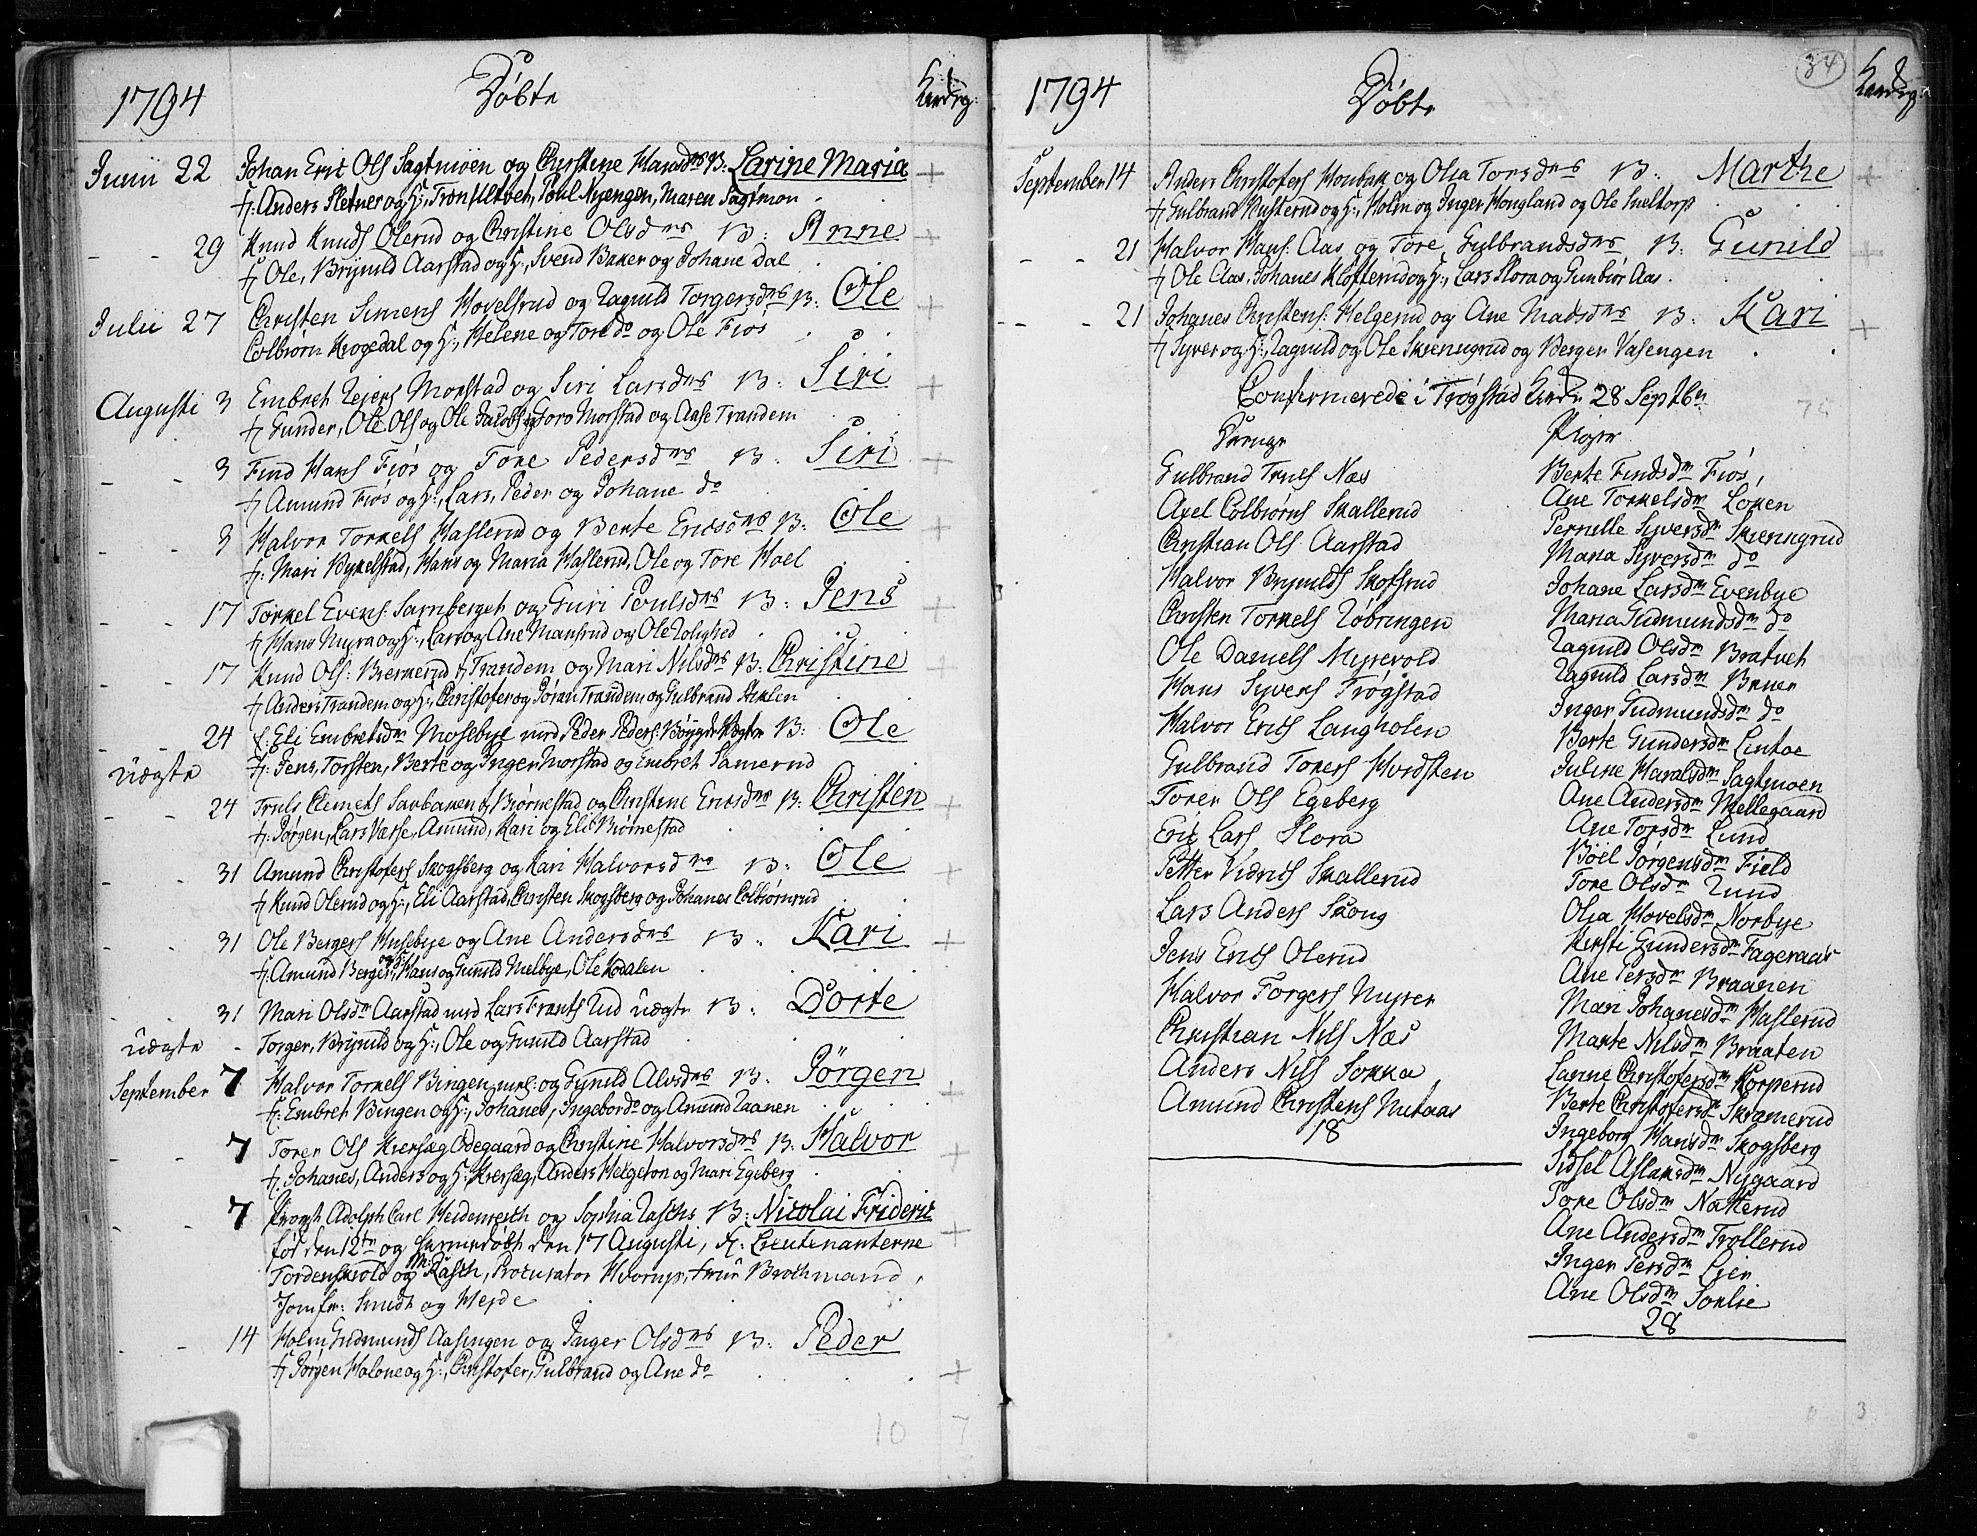 1794 Døbte
Junii 22 Johan Eric Ols Sagtmoen og Christine Hansdr B: Larine Maria
F: Anders Sletner og H:, Trøn Ultvet, Poul Nyengen, Maren Sagtmon
29 Knud Knuds Olerud og Christine Olsdr B: Anne
F: Ole, Brynild Aarstad og H:, Svend Baker og Johane Dal
Julii 27 Christen Simens Hovelsrud og Ragnild Torgersdr B: Ole
Colbiørn Krogedal og H:, Helene og Tore do og Ole Fiøs
Augusti 3 Embret Reiers Morstad og Siri Larsdr B: Siri
F: Gunder, Ole Ols og Ole Jacobs og Goro Morstad og Aase Trandem
3 Find Hans Fiøs og Tore Pedersdr B: Siri
F: Amund Fiøs og H:, Lars, Peder og Johane do
3 Halvor Torkels Haslerud og Berte Ericsdr B: Ole
F: Mari Bykelstad, Hans og Maria Haslerud, Ole og Tore Hoel
17 Torkel Evens: Sarnberget og Guri Poulsdr B: Jens
F: Hans Myra og H:, Lars og Ane Mansrud og Ole
17 Knud Ols: Bierkerud f Trandem og Mari Nilsdr B: Christine
F: Anders Trandem og H:, Christofer og Jøran Trandem og Gulbrand
24 Eli Embretsdr Mosebye med Peder Peders: B: Ole
uægte F: Jens, Torsten, Berte og Inger Morstad og Embret Samerud
24 Truls Clemets Saubakken f Biørnestad og Christine Ericsdr B: Christen
F: Jørgen, Lars Varse, Amund, Kari og Eli Biørnestad
31 Amund Christofers Skogsberg og Kari Halvorsdr B: Ole
F: Knud Olerud og H:, Eli Aarstad, Christen Skogsberg og Johanes Colbiørnrud
31 Ole Bergers Husebye og Ane Andersdr B: Kari
F: Amund Berger og H:, Hans og Gunild Melbye, Ole Kodalen
31 Mari Olsdr Aarstad med Lars Frants Lud uægte B: Dorte
uægte Torger, Brynild og H:, Ole og Gunild Aarstad
September 7 Halvor Torkels Bingen og Gunild Alvsdr B: Jørgen
F: Embret Bingen og H:, Johanes, Ingebor do og Amund Raanen
7 Torer Ols Kiersæg Ødegaard og Christine Halvorsdr B: Halvor
F: Johanes, Anders og H: Kiersæg, Anders Helgeton og Mari Egeberg
7 Adolph Carl Heidenreich og Sophia Raschs B: Nicolai Frideric
fød den 12te og hiemedøbt den 17 Augusti, F: Lieutenanterne
Tordenskiold og Mr Rasch, Procurator Hvorup, Frue Brochmand,
Jomfr: Smidt og Heyde
14 Holm Gudmunds Aasengen og Inger Olsdr B: Peder
F: Jørgen Halone og H:, Christofer, Gulbrand og Ane do
10 7
1794 Døbte 34
September 14 Anders Christofers Houbak og Olia Torsdr B: Marthe
F: Gulbrand Husterud og H:, Holm og Inger Hougland og Ole Sneltorp
21 Halvor Hans: Aas og Tore Gulbrandsdr B: Gunild
F: Ole Aas, Johanes Kløfterud og H:, Lars Flora og Gunbiør Aas
21 Johanes Christens: Helgerud og Ane Madsdr B: Kari
F: Syver og H:, Ragnild og Ole Skiennegrud og Berger Vasengen
Confirmerede i Trøgstad Kirke 28 Septbr
Drenge
Gulbrand Truls Næs
Axel Colbiørns Skallerud
Christian Ols Aarstad
Halvor Brynilds Skofsrud
Christen Torkels Røbsingen
Ole Daniels Myrevold
Hans Syvers Frøgstad
Halvor Erics Langholen
Gulbrand Torers Hvidsten
Torer Ols Egeberg
Eric Lars Flora
Petter Vidrics Skallerud
Lars Anders Skoug
Jens Erics Olerud
Halvor Torgers Myrer
Christian Nils Næs
Anders Nils Sokka
Amund Christens Nutaas
18
Piger
Berte Findsdr Fiøs
Ane Torkelsdr Loken
Pernille Syversdr Skienngrud
Maria Syversdr do
Johane Larsdr Evenbye
Maria Gudmundsdr do
Ragnild Olsdr Bratvet
Ragnild Larsdr Bruer
Inger Gudmundsdr do
Berte Gundersdr Lintoe
Juline Haralsdr Sagtmoen
Ane Andersdr Mellegaard
Ane Torsdr Lund
Bøel Jørgensdr Field
Tore Olsdr Rund
Olia Hovelsdr Norbye
Kersti Gundersdr Fageraas
Ane Persdr Braanen
Mari Johanesdr Haslerud
Marte Nilsdr Braaten
Larine Christofersdr Korperud
Berte Christofersdr Skramerud
Ingeborg Hansdr Skogsberg
Sidsel Aslaksdr Nygaard
Tore Olsdr Natterud
Ane Andersdr Trollerud
Inger Persdr Lier
Ane Olsdr Sonlie
28